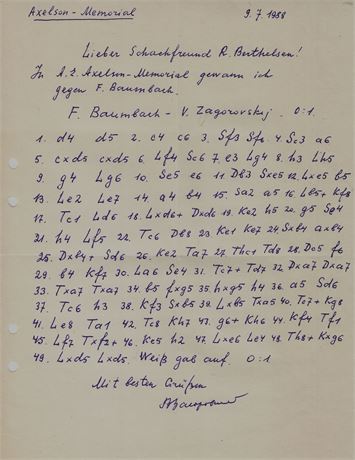 Axelson - Memorial 9.7.1988
Lieber Schachfreund R. Berthelsen!
In A.E. Axelson-Memorial gewann ich
gegen F. Baumbach.
F. Baumbach - V. Zagorovskij. 0:1
1. d4 d5 2. c4 c6 3. Sf3 Sf6 4. Sc3 a6
5. cxd5 cxd5 6. Lf4 Sc6 7. e3 Lg4 8. h3 Lh5
9. g4 Lg6 10. Se5 e6 11. Db3 Sxe5 12. Lxe5 b5
13. Le2 Le7 14. a4 b4 15. Sa2 a5 16. Lb5+ Kf8
17. Tc1 Ld6 18. Lxd6+ Dxd6 19. Ke2 h5 20. g5 Se4
21. h4 Lf5 22. Tc6 Db8 23. Ke1 Ke7 24. Sxb4 axb4
25. Dxb4+ Sd6 26. Ke2 Ta7 27. Thc1 Td8 28. Dc5 f6
29. b4 Kf7 30. La6 Se4 31. Tc7+ Td7 32. Dxa7 Dxa7
33. Txa7 Txa7 34. b5 fxg5 35. hxg5 h4 36. a5 Sd6
37. Tc6 h3 38. Kf3 Sxb5 39. Lxb5 Txa5 40. Tc7+ Kg8
41. Le8 Ta1 42. Tc8 Kh7 43. g6+ Kh6 44. Kf4 Tf1
45. Lf7 Txf2+ 46. Ke5 h2 47. Lxe6 Le4 48. Th8+ Kxg6
49. Lxd5 Lxd5. Weiß gab auf. 0:1
Mit besten Grüßen